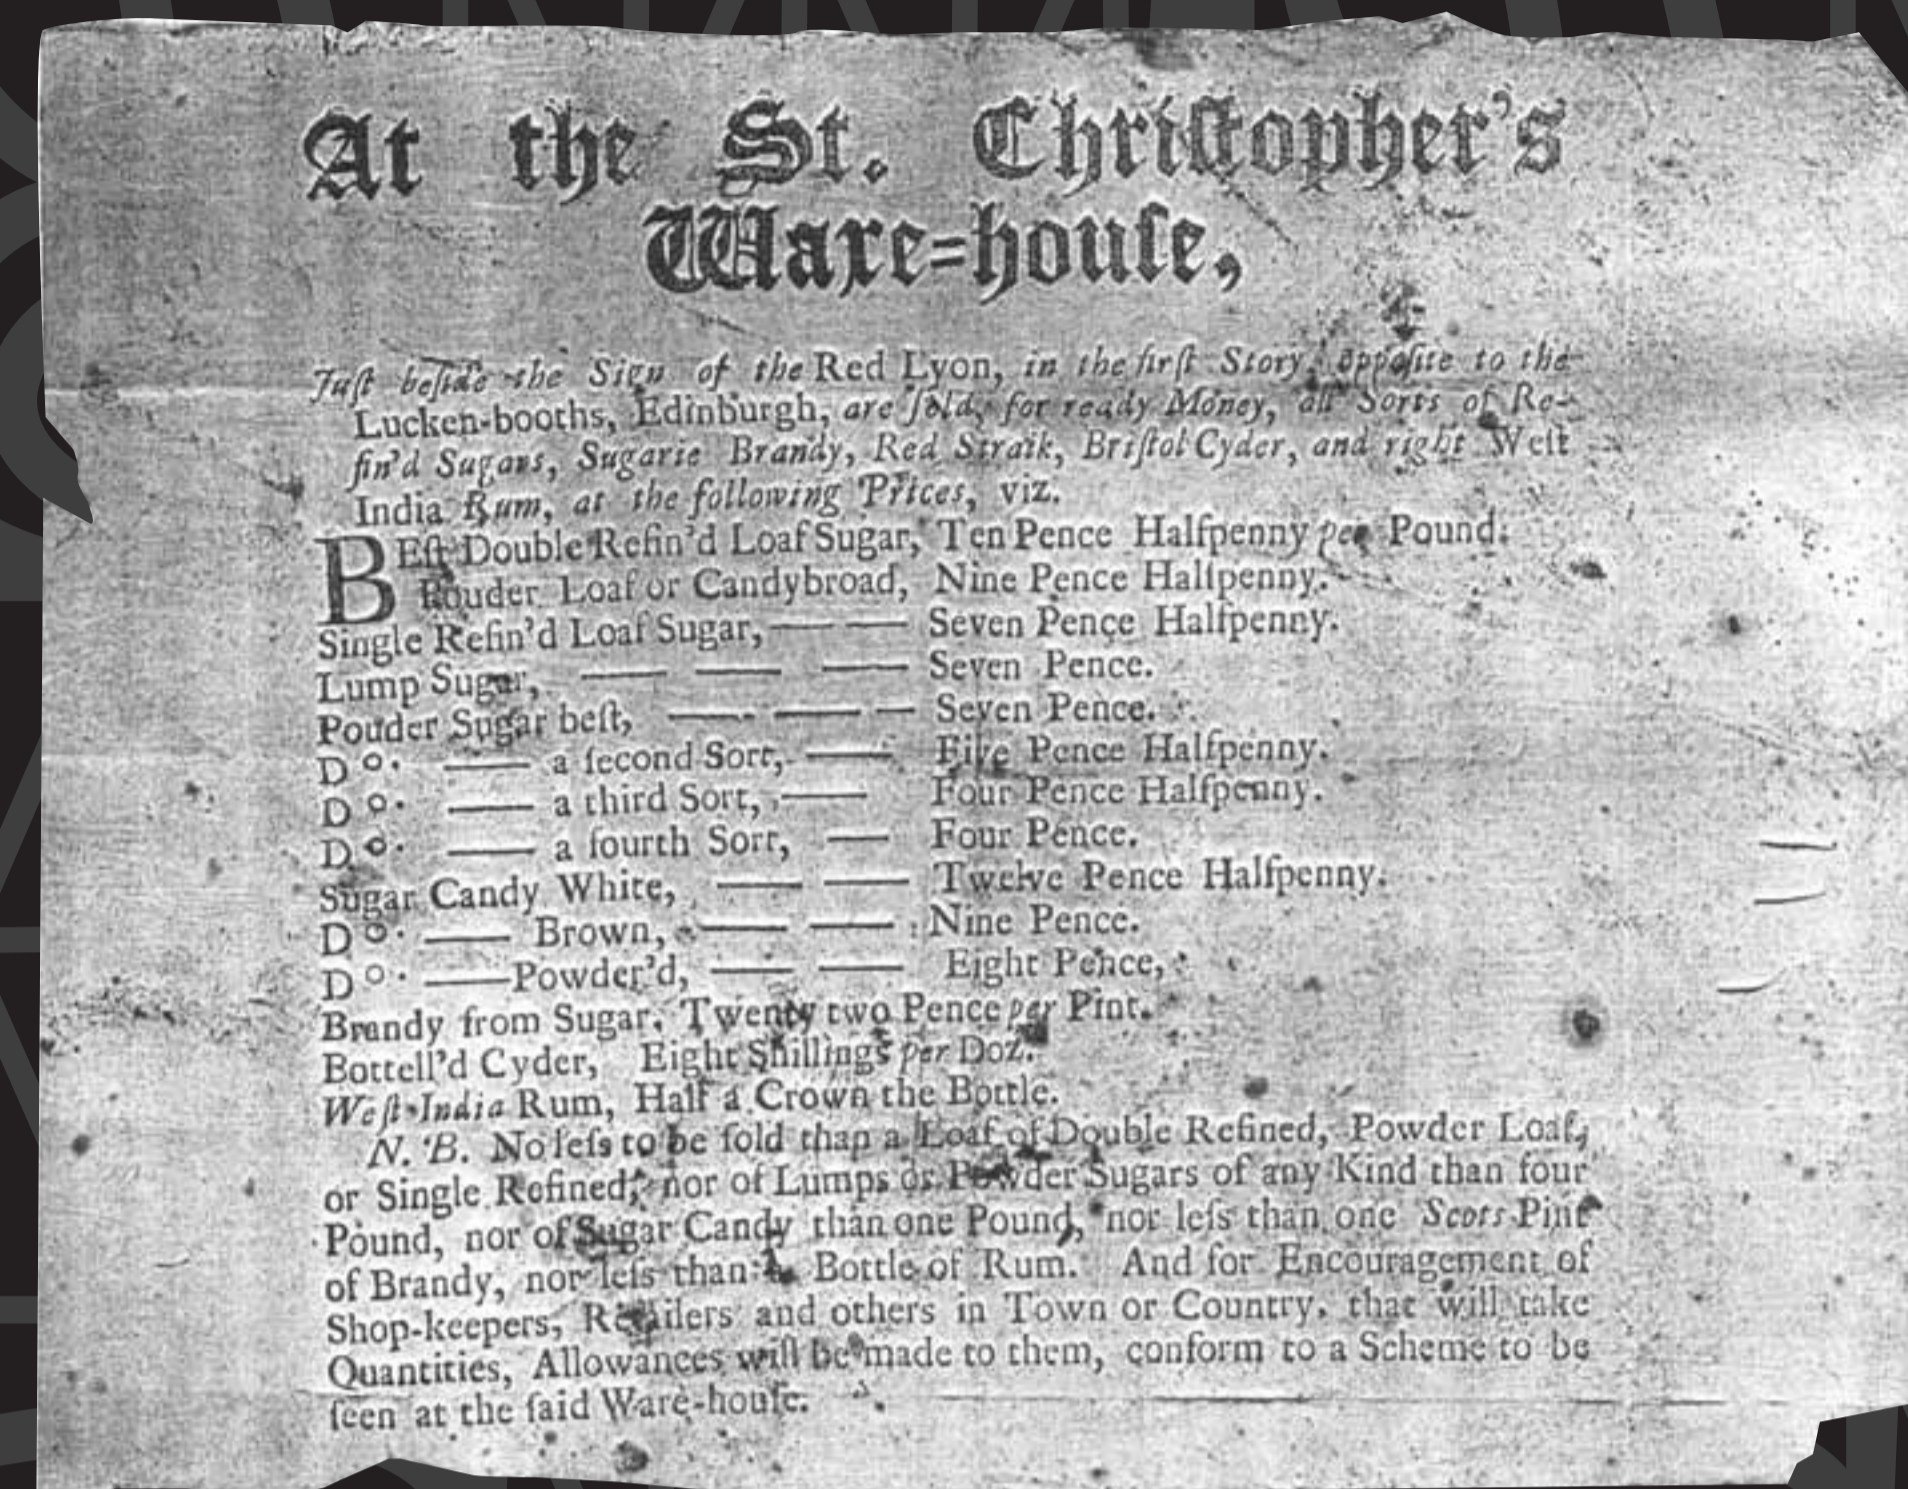 At the St. Chriſtopher's
Ware=houſe,
Juſt beſide the Sign of the Red Lyon, in the firſt Story, oppoſite to the
Lucken-booths, Edinburgh, are ſold, for ready Money, all Sorts of Re-
fin'd Sugars, Sugarie Brandy, Red Straik, Briſtol Cyder, and right Weſt
India Rum, at the following Prices, viz.
BEſt Double Refin'd Loaf Sugar, Ten Pence Halfpenny per Pound.
Pouder Loaf or Candybroad, Nine Pence Halfpenny.
Single Refin'd Loaf Sugar, — — Seven Pence Halfpenny.
Lump Sugar, — — — Seven Pence.
Pouder Sugar beſt, — — — Seven Pence.
D°. — a ſecond Sort, — Five Pence Halfpenny.
D°. — a third Sort, — Four Pence Halfpenny.
D°. — a fourth Sort, — Four Pence.
Sugar Candy White, — — Twelve Pence Halfpenny.
D°. — Brown, — — Nine Pence.
D°. — Powder'd, — — Eight Pence,
Brandy from Sugar, Twenty two Pence per Pint.
Bottell'd Cyder, Eight Shillings per Doz.
Weſt-India Rum, Half a Crown the Bottle.
N. B. No leſs to be ſold than a Loaf of Double Refined, Powder Loaf,
or Single Refined; nor of Lumps or Powder Sugars of any Kind than four
Pound, nor of Sugar Candy than one Pound, nor leſs than one Scots Pint
of Brandy, nor leſs than a Bottle of Rum. And for Encouragement of
Shop-keepers, Retailers and others in Town or Country, that will take
Quantities, Allowances will be made to them, conform to a Scheme to be
ſeen at the ſaid Ware-houſe.